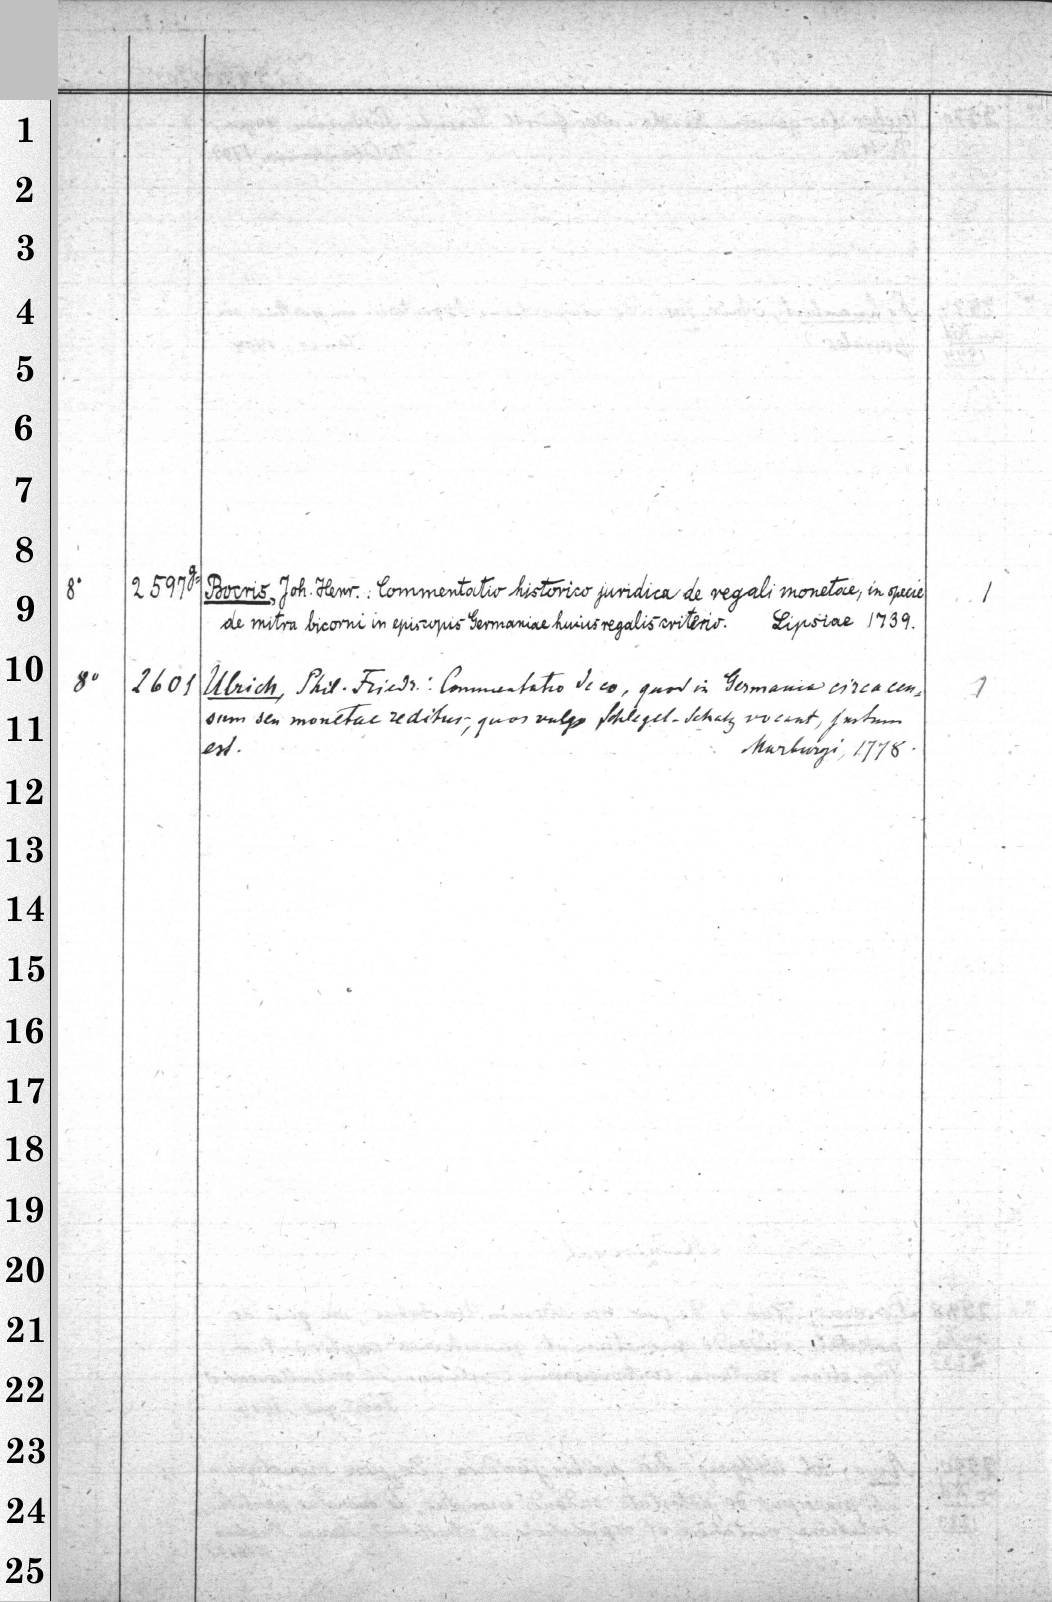 1
2
3
4
5
6
7
8
8° 2597g Bocris, Joh. Henr.: Commentatio historico juridica de regali monetae, in specie 1
9
de mitra bicorni in episcopis Germaniae huius regalis criterio. Lipsiae 1739.
10
8° 2601 Ulrich, Phil. Friedr.: Commentatio de eo, quod in Germania circa cen- 1
11
sum seu monetae reditus, quos vulgo Schlegel-Schatz vocant, justum
est. Marburgi, 1778.
12
13
14
15
16
17
18
19
20
21
22
23
24
25